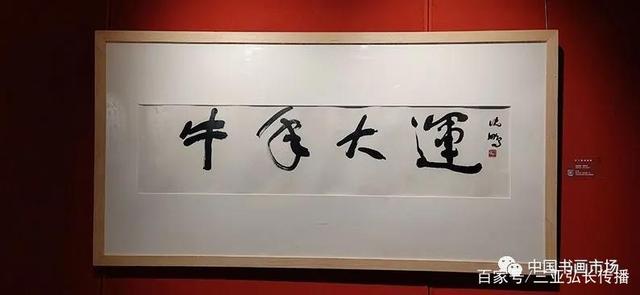 牛年大運
沈鵬
中国书画市场
百家号/三亚弘长传播